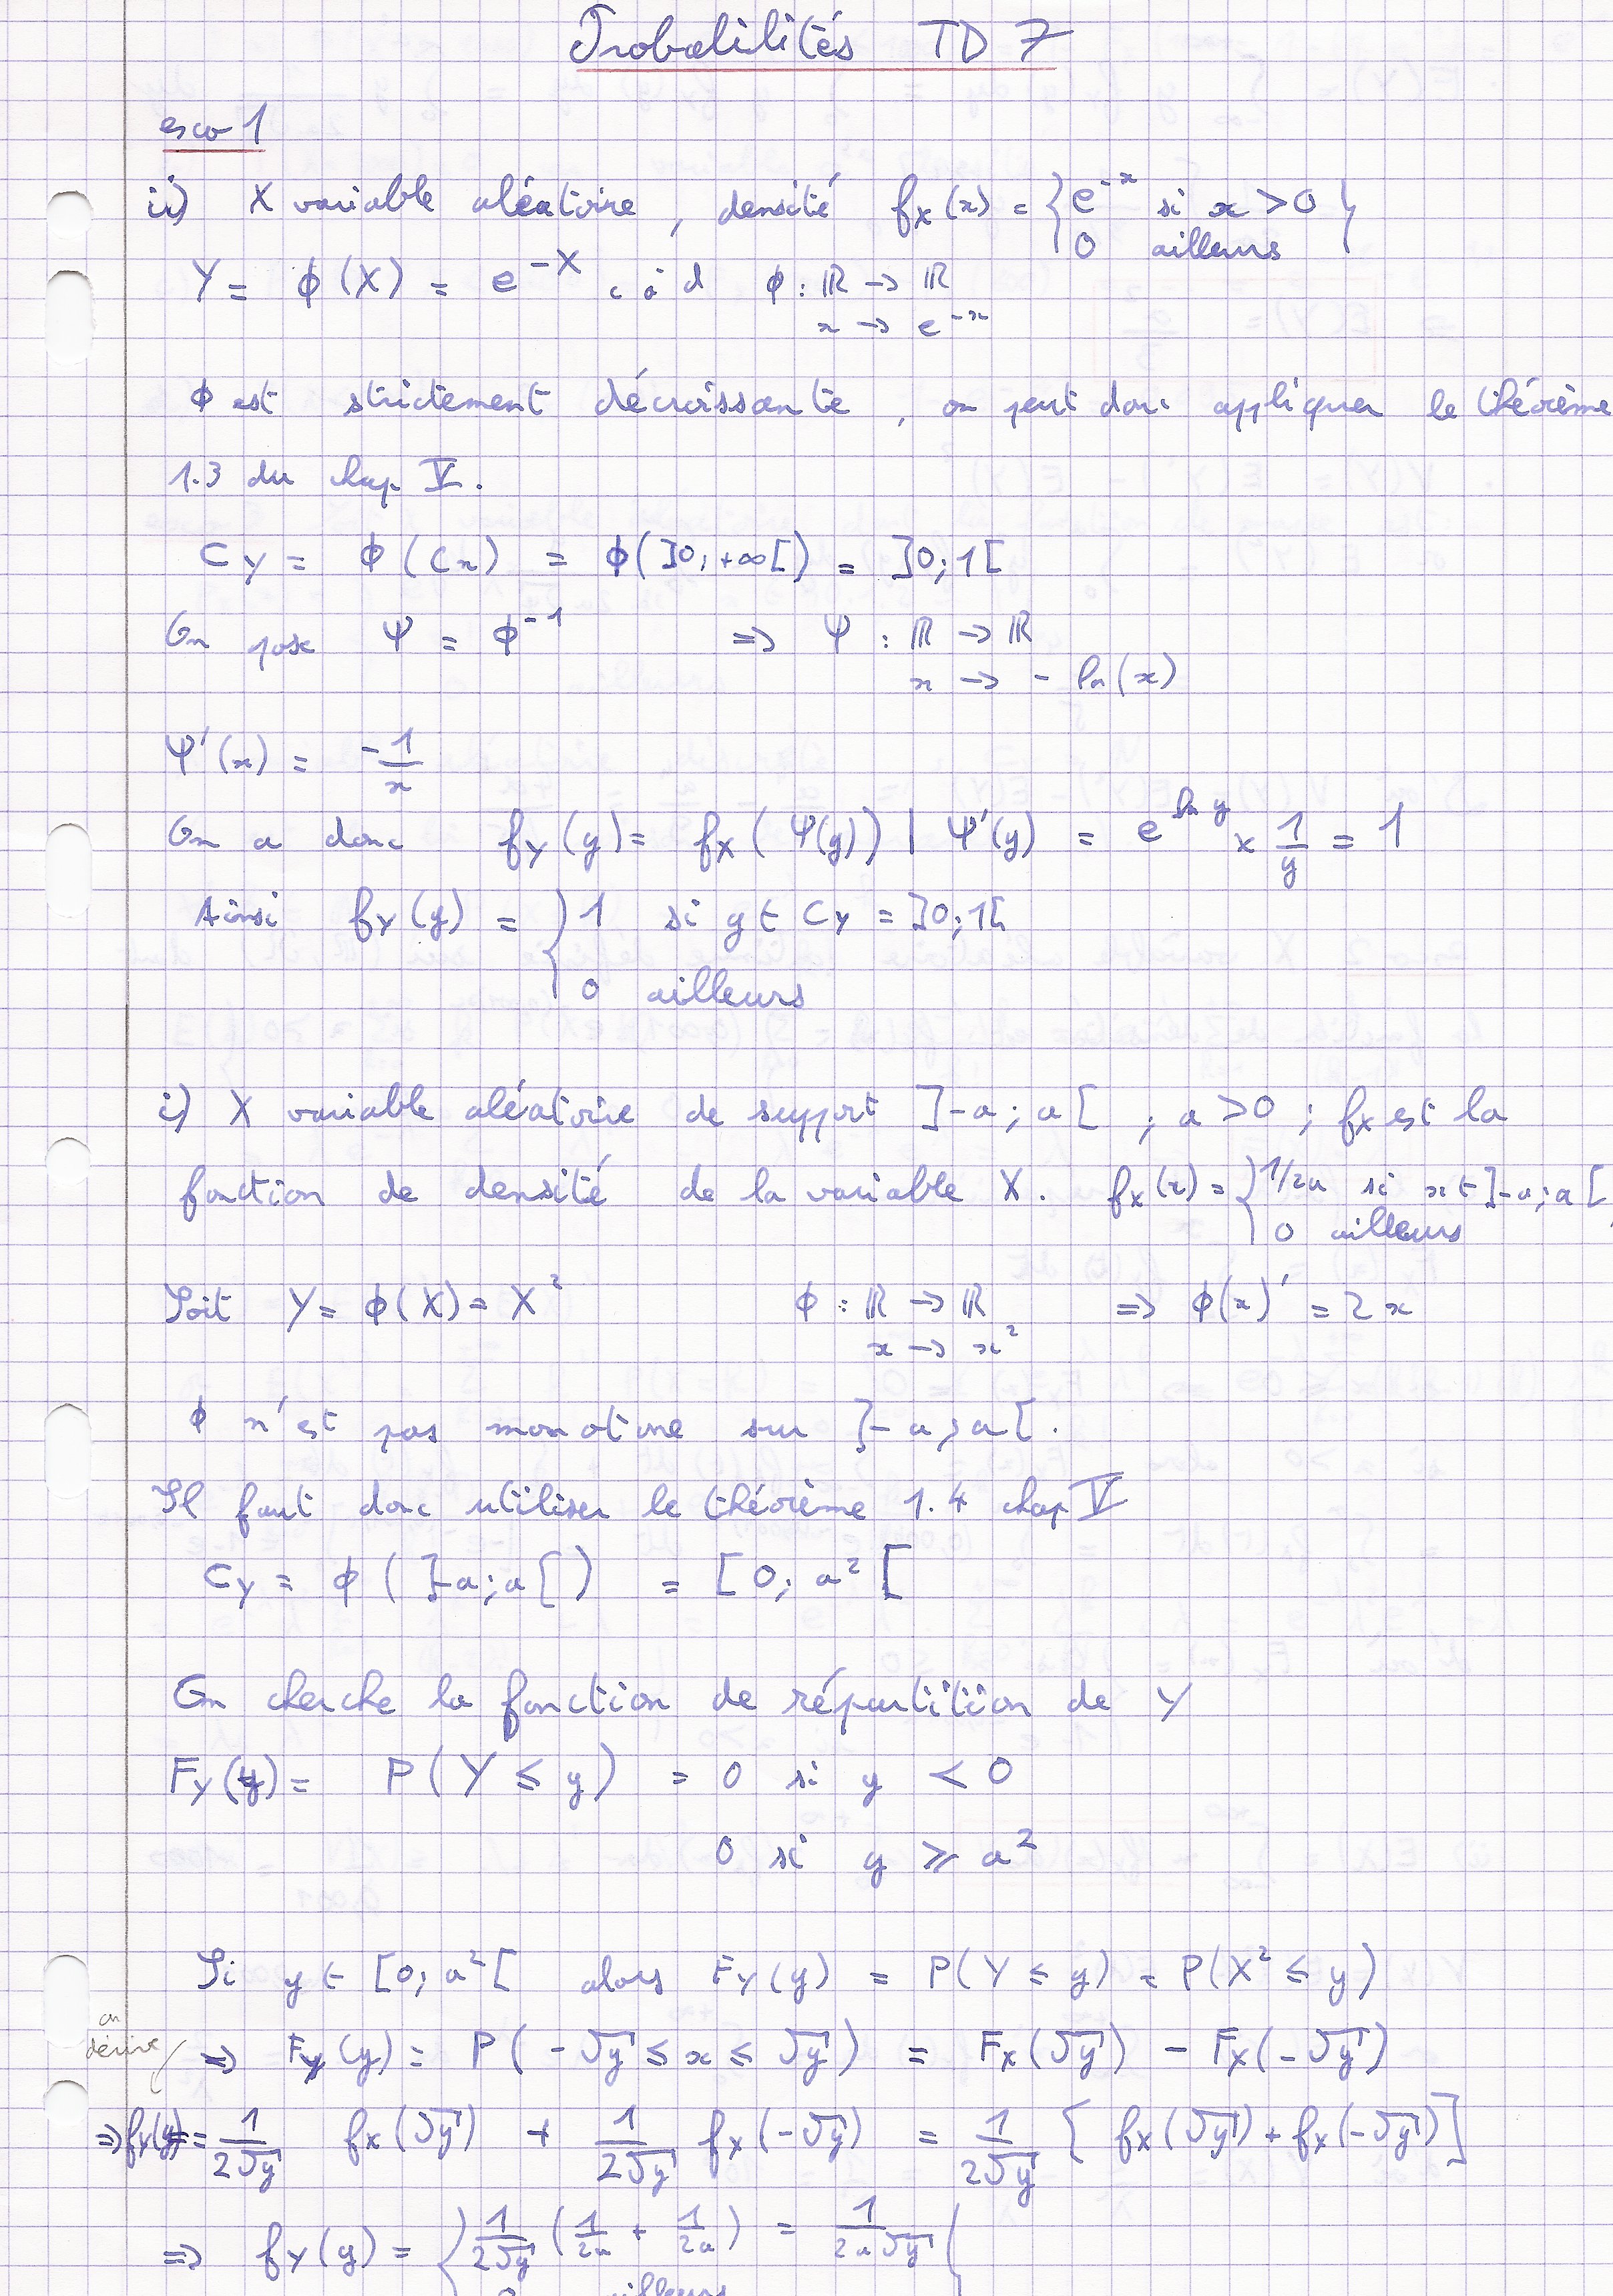 Probabilités TD 7
exo 1
ii) X variable aléatoire, densité fX(x) = { e^-x si x > 0
0 ailleurs }
Y = ϕ(X) = e^-X c à d ϕ : ℝ → ℝ
x → e^-x
ϕ est strictement décroissante, on peut donc appliquer le théorème
1.3 du chap V.
CY = ϕ(Cx) = ϕ(]0; +∞[) = ]0; 1[
On pose Ψ = ϕ^-1 => Ψ : ℝ → ℝ
x → - ln(x)
Ψ'(x) = -1/x
On a donc fY(y) = fX(Ψ(y)) | Ψ'(y) = e^ln y × 1/y = 1
Ainsi fY(y) = { 1 si y ∈ CY = ]0; 1[
0 ailleurs
i) X variable aléatoire de support ]-a; a[ ; a > 0 ; fX est la
fonction de densité de la variable X. fX(x) = { 1/2a si x ∈ ]-a; a[
0 ailleurs
Soit Y = ϕ(X) = X² ϕ : ℝ → ℝ => ϕ(x)' = 2x
x → x²
ϕ n'est pas monotone sur ]-a; a[.
Il faut donc utiliser le théorème 1.4 chap V
CY = ϕ(]-a; a[) = [0; a²[
On cherche la fonction de répartition de Y
FY(y) = P(Y ≤ y) = 0 si y < 0
0 si y ≥ a²
Si y ∈ [0; a²[ alors FY(y) = P(Y ≤ y) = P(X² ≤ y)
on dérive
=> FY(y) = P(-√y ≤ x ≤ √y) = FX(√y) - FX(-√y)
=> fY(y) = 1/2√y fX(√y) + 1/2√y fX(-√y) = 1/2√y [fX(√y) + fX(-√y)]
=> fY(y) = { 1/2√y (1/2a + 1/2a) = 1/2a√y }
0 ailleurs